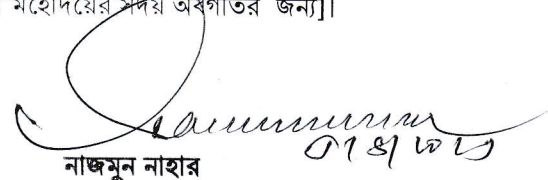 মহোদয়ের সদয় অবগতির জন্য]।
নাজমুন নাহার